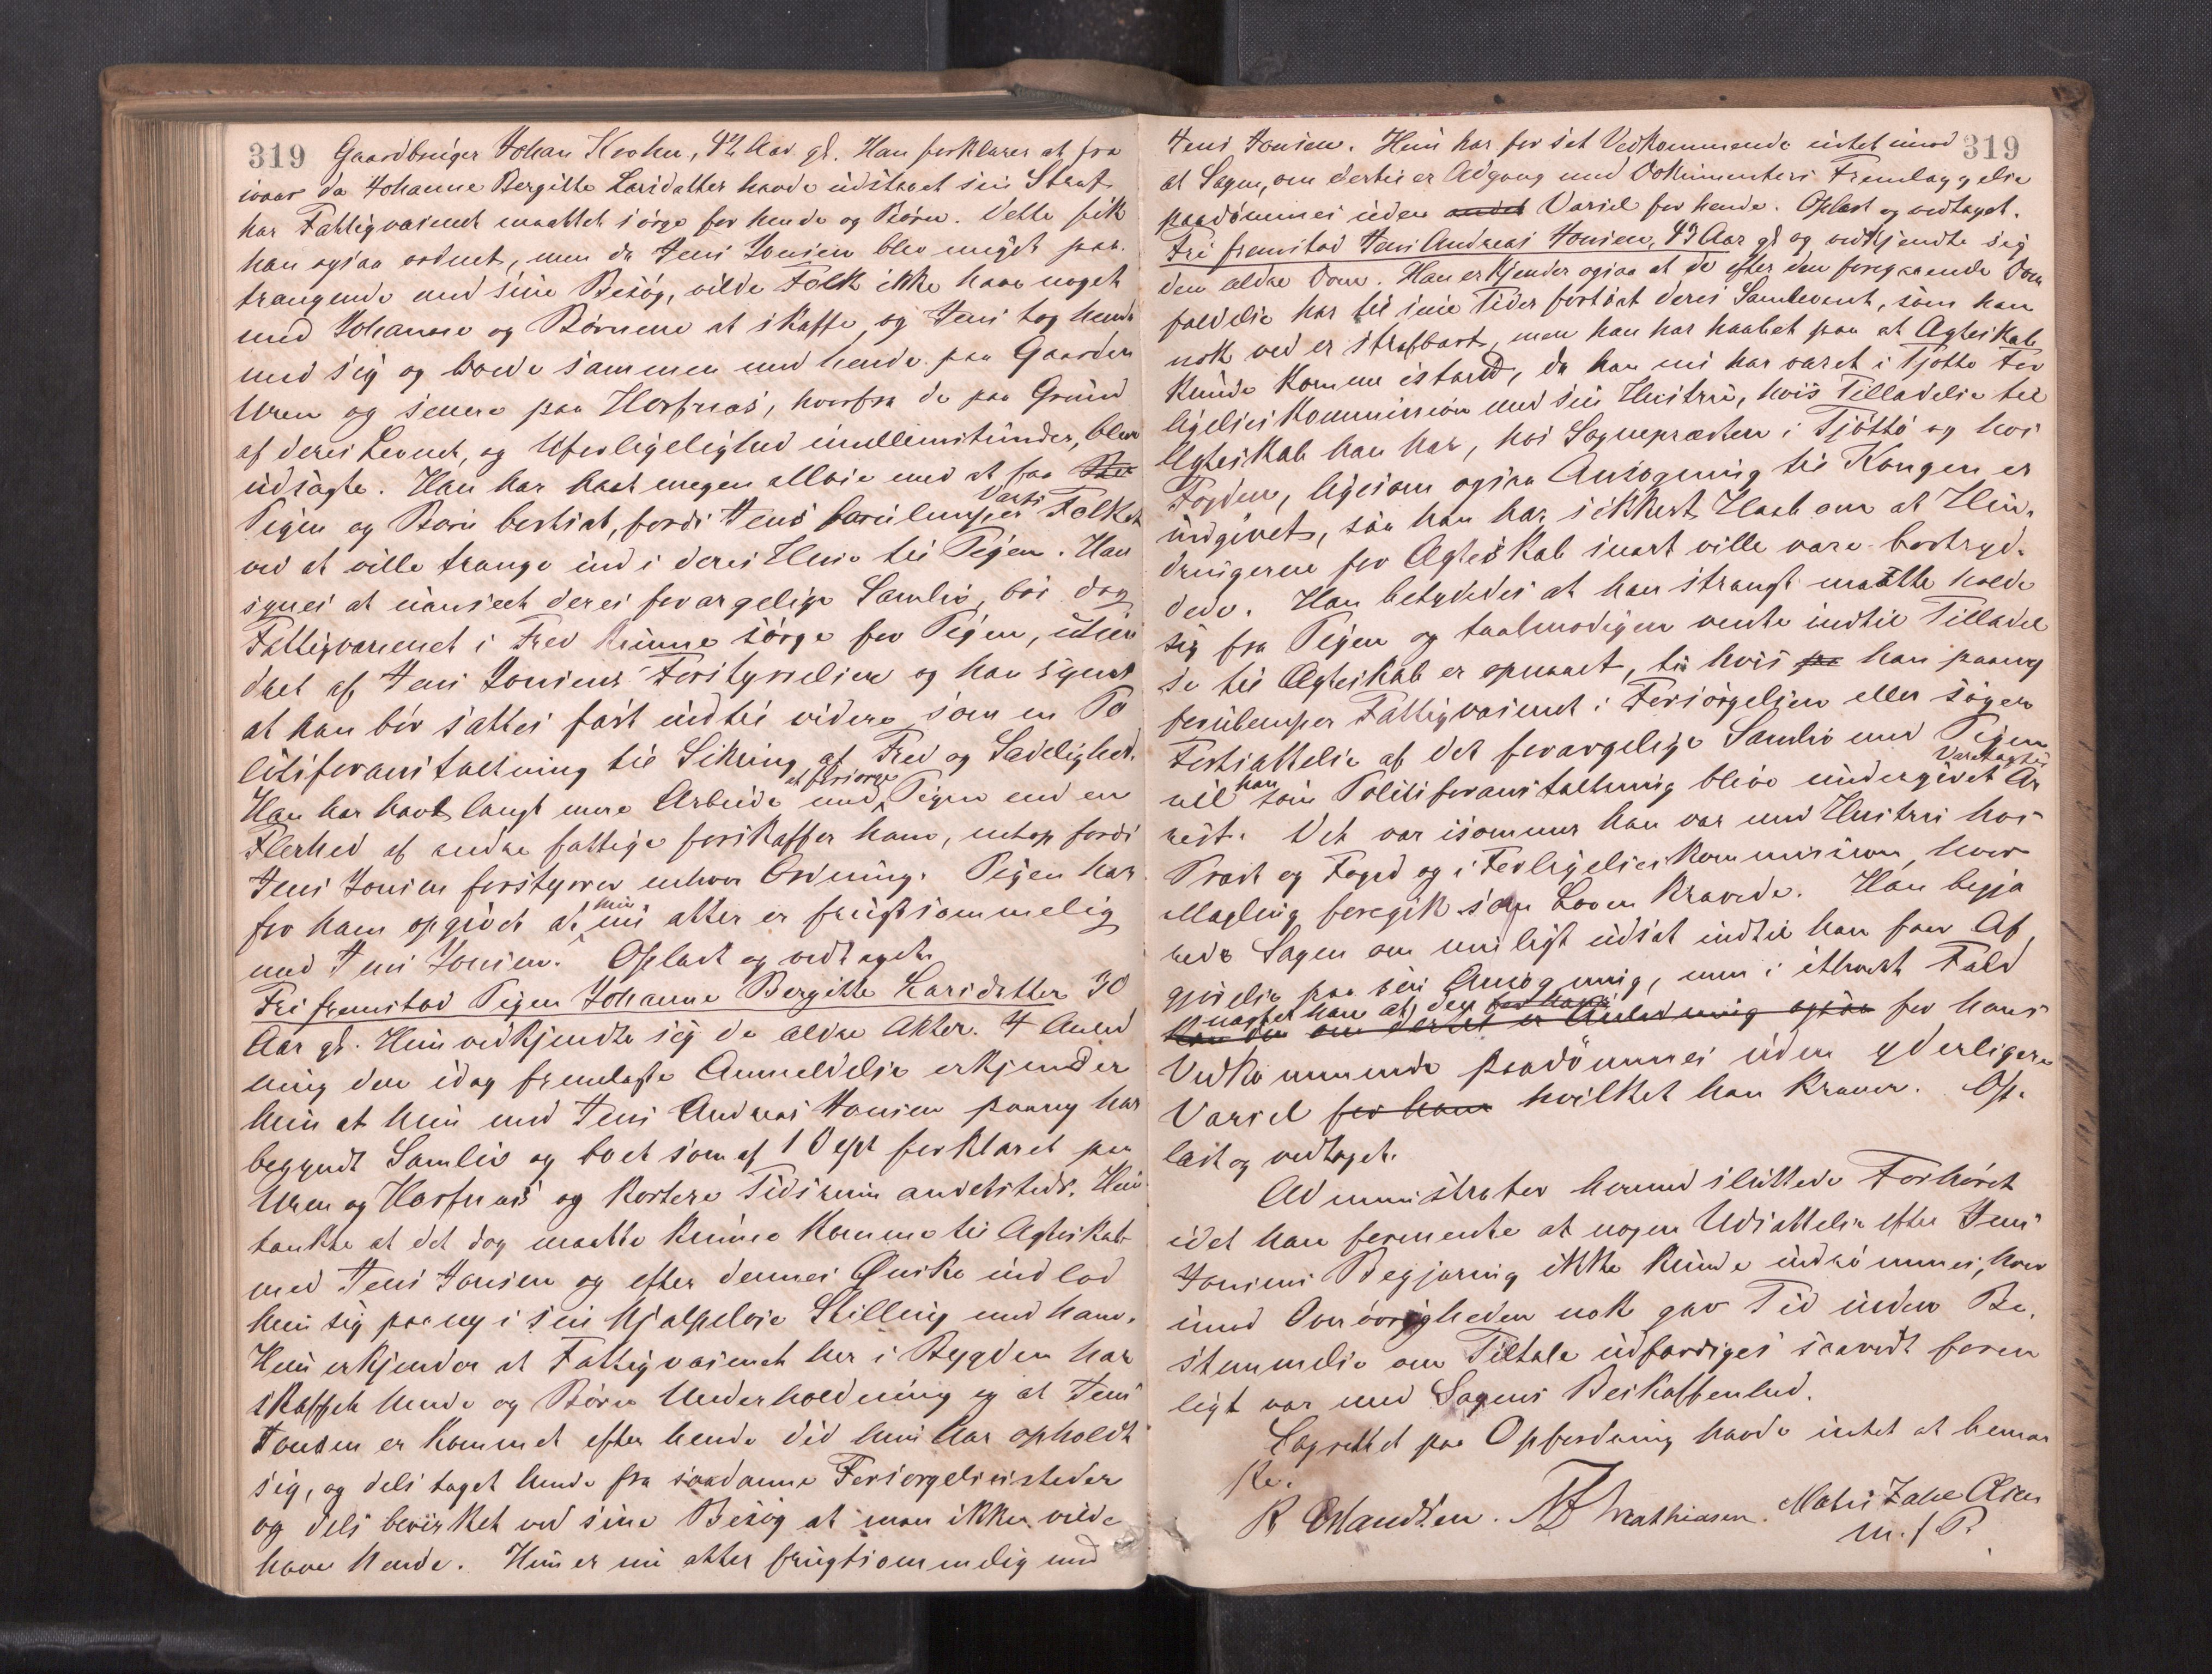 319 Gaardbruger Johan Krohn, 42 Aar gl. Han forklarer at fra
ivaar da Johanne Bergitte Larsdatter havde udstaaet sin Straf
har Fattigvæsenet maattet sørge for hende og Børn. Dette fik
han ogsaa ordnet, men da Jens Jonsen blev meget paa-
trængende med sine Besøg, vilde Folk ikke have noget
med Johanne og Børnene at skaffe og Jens tog hende
med sig og boede sammen med hende paa Gaarden
Uren og senere paa Hosfnæs, hvorfra de paa Grund
af deres Levnet, og Uforligelighed imellemstunder, blev
udsagte. Han har havt megen Møie med at faa
Pigen og Børn bortsat, fordi Jens forulemper Folket
ved at ville trænge ind i deres Huse til Pigen. Han
synes at uanseet deres forargelige Samliv, bør dog
Fattigvæsenet i Fred kunne sørge for Pigen, uhin-
dret af Jens Jonsens Forstyrrelser og han synes
at han bør sættes fast indtil videre som en Po
litiforanstaltning til Sikring af Fred og Sædelighed.
Han har havt langt mere Arbeide med at forsørge Pigen end en
Flerhed af andre fattige forskaffer ham, netop fordi
Jens Jonsen forstyrrer enhver Ordning. Pigen har
for ham opgivet at hun nu atter er frugtsommelig
med Jens Jonsen. Oplæst og vedtaget.
Fri fremstod Pigen Johanne Bergitte Larsdatter 30
Aar gl. Hun vedkjendte sig de ældre Akter. I Anled
ning den idag fremlagte Anmeldelse erkjender
hun at hun med Jens Andreas Jonsen paany har
begyndt Samliv og boet som af 1 Dept forklaret paa
Uren og Hosfnæs og kortere Tidsrum andetsteds. Hun
tænkte at det dog maatte kunne komme til Ægteskab
med Jens Jonsen og efter dennes Ønske indlod
hun sig paany i sin hjælpeløse Stilling med ham.
Hun erkjender at Fattigvæsenet her i Bygden har
skaffet hende og Børn Underholdning og at Jens
Jonsen er kommet efter hende did hun har opholdt
sig, og dels taget hende fra saadanne Forsørgelsessteder
og dels bevirket ved sine Besøg at man ikke vilde
have hende. Hun er nu atter frugtsommelig med
Jens Jonsen. Hun har for sit Vedkommende intet imod 319
at Sagen, om dertil er Adgang med Dokumenters Fremlæggelse
paadømmes uden andet Varsel for hende. Oplæst og vedtaget.
Fri fremstod Jens Andreas Jonsen, 43 Aar gl og vedkjendte sig
den ældre Dom. Han erkjender ogsaa at de efter den foregaaende Dom
fældelse har til sine Tider fortsat deres Samlevnet, som han
nok ved er strafbart, men han har haabet paa at Ægteskab
kunde komme istand, da han nu har været i Tjøttø For
ligelseskommission med sin Hustru, hvis Tilladelse til
Ægteskab han har, hos Sognepræsten i Tjøttø og hos
Fogden, ligesom ogsaa Ansøgning til Kongen er
indgivet, saa han har sikkert Haab om at Hin-
dringerne for Ægteskab snart ville være bortryd-
dede. Han betydedes at han strengt maatte holde
sig fra Pigen og taalmodigen vente indtil Tilladel
se til Ægteskab er opnaaet, thi hvis han paany
forulemper Fattigvæsenet i Forsørgelsen eller søger
Fortsættelse af det forargelige Samliv med Pigen
vil han som Politiforanstaltning blive undergivet Varetægts Ar
rest. Det var isommer han var med Hustru hos
Præst og Foged og i Forligelseskommissionen, hvor
Mægling foregik som Loven krævede. Han begjæ
rede Sagen om muligt udsat indtil han faar Af
gjørelse paa sin Ansøgning, men i ethvert Fald
vedtog han at den for hans
Vedkommende paadømmes uden yderligere
Varsel for ham hvilket han kræver. Op-
læst og vedtaget.
Administrator hermed sluttede Forhøret
idet han formente at nogen Udsættelse efter Jens
Jonsens Begjæring ikke kunde indrømmes, hvor
imod Overøvrigheden nok gav Tid inden Be-
stemmelse om Tiltale udfærdiges saavidt foren
ligt var med Sagens Beskaffenhed.
Lagrettet paa Opfordring havde intet at bemær
ke.
Mathiasen.
m. f P.